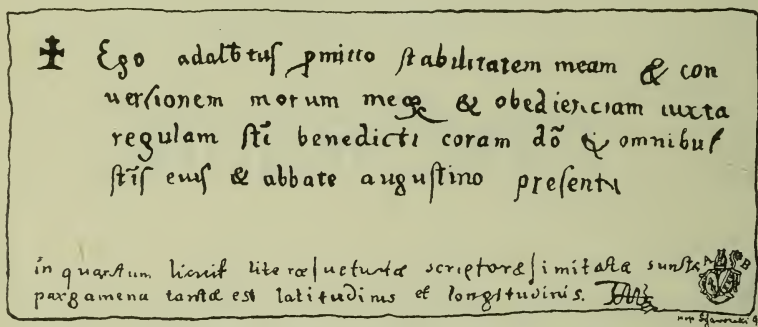 ✠ Ego adalbtus ꝓmitto stabilitatem meam & con
uersionem morum meoꝝ & obedienciam iuxta
regulam sti benedicti coram dõ & omnibus
stis eius & abbate augustino presenti
in quantum licuit literæ uetustæ scriptoræ imitatæ sunt
pargamena tantæ est latitudinis et longitudinis.
A B